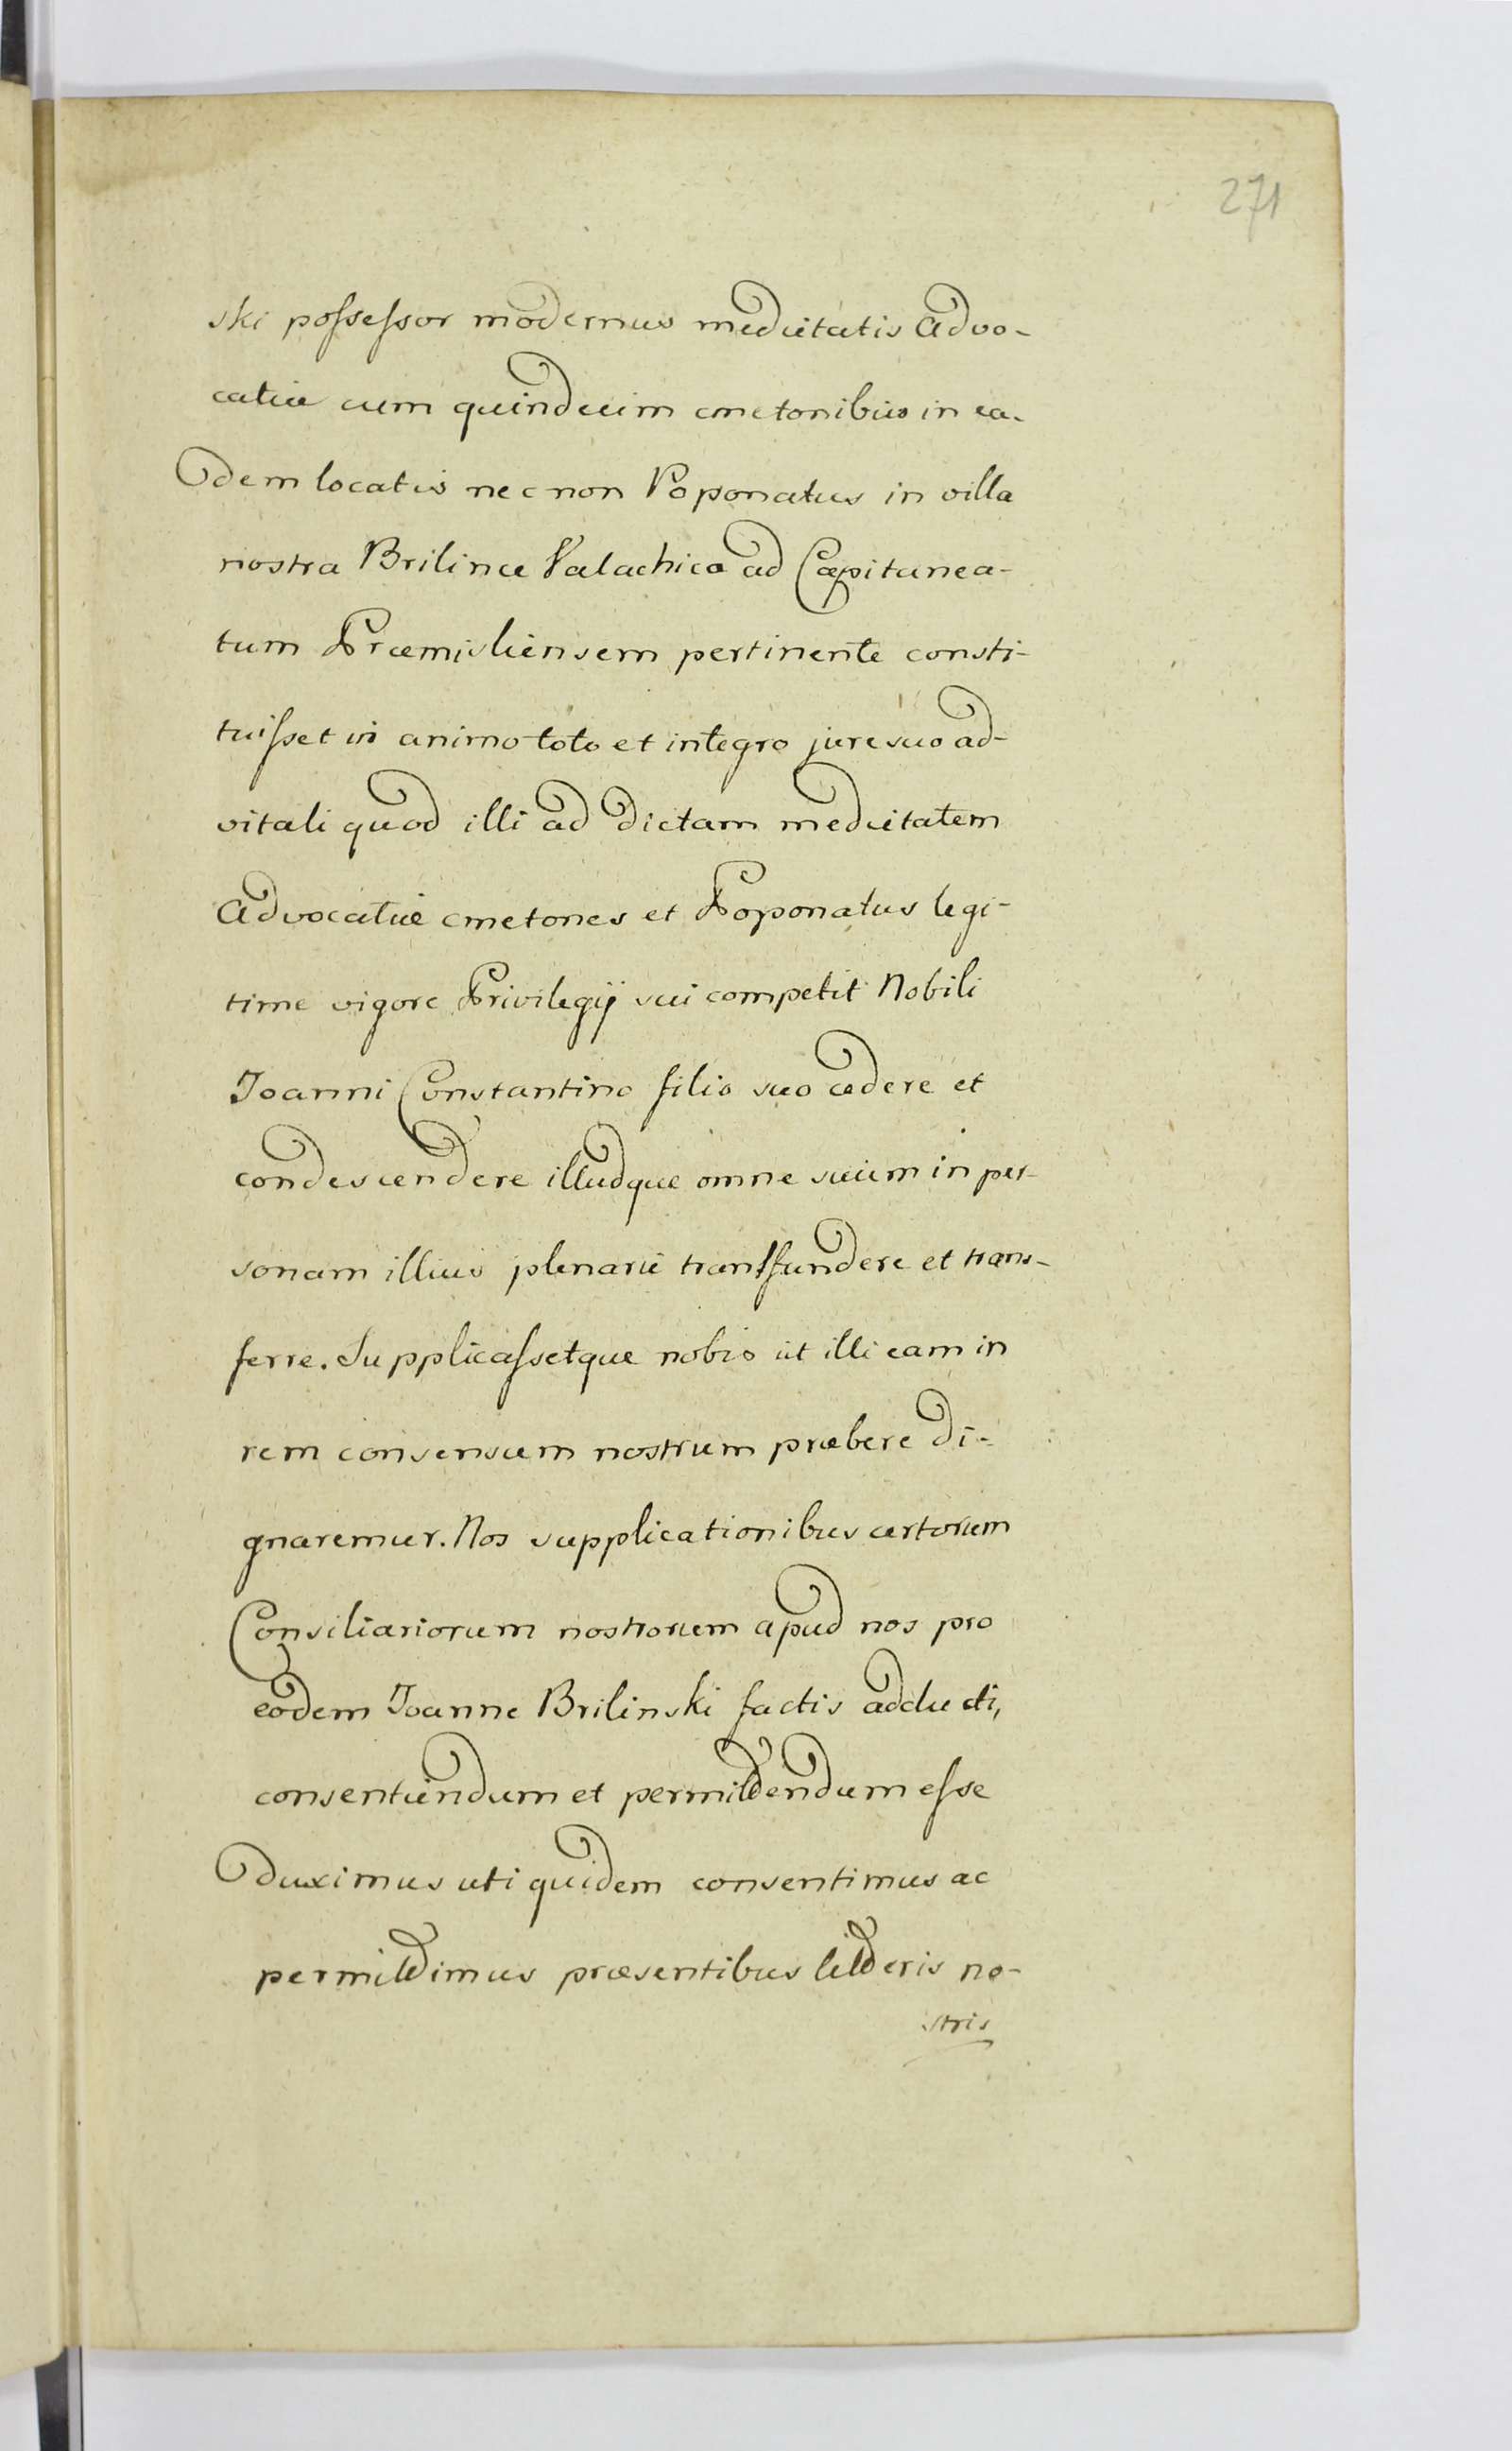 271
ski possessor modernus medietatis Advo-
catiæ cum quindecim cmetonibus in ea-
dem locatis nec non Poponatus in villa
nostra Brilince Valachica ad Capitanea-
tum Præmisliensem pertinente consti-
tuisset in animo toto et integro jure suo ad-
vitali quod illi ad dictam medietatem
Advocatiæ cmetones et Poponatus legi-
time vigore Privilegij sui competit Nobili
Joanni Constantino filio suo cedere et
condescendere illudque omne suum in per-
sonam illius plenarie transfundere et trans-
ferre. Supplicassetque nobis ut illi eam in
rem consensum nostrum præbere di-
gnaremur. Nos supplicationibus certorum
Consiliariorum nostrorum apud nos pro
eodem Joanne Brilinski factis adducti,
consentiendum et permittendum esse
duximus uti quidem consentimus ac
permittimus præsentibus litteris no-
stris